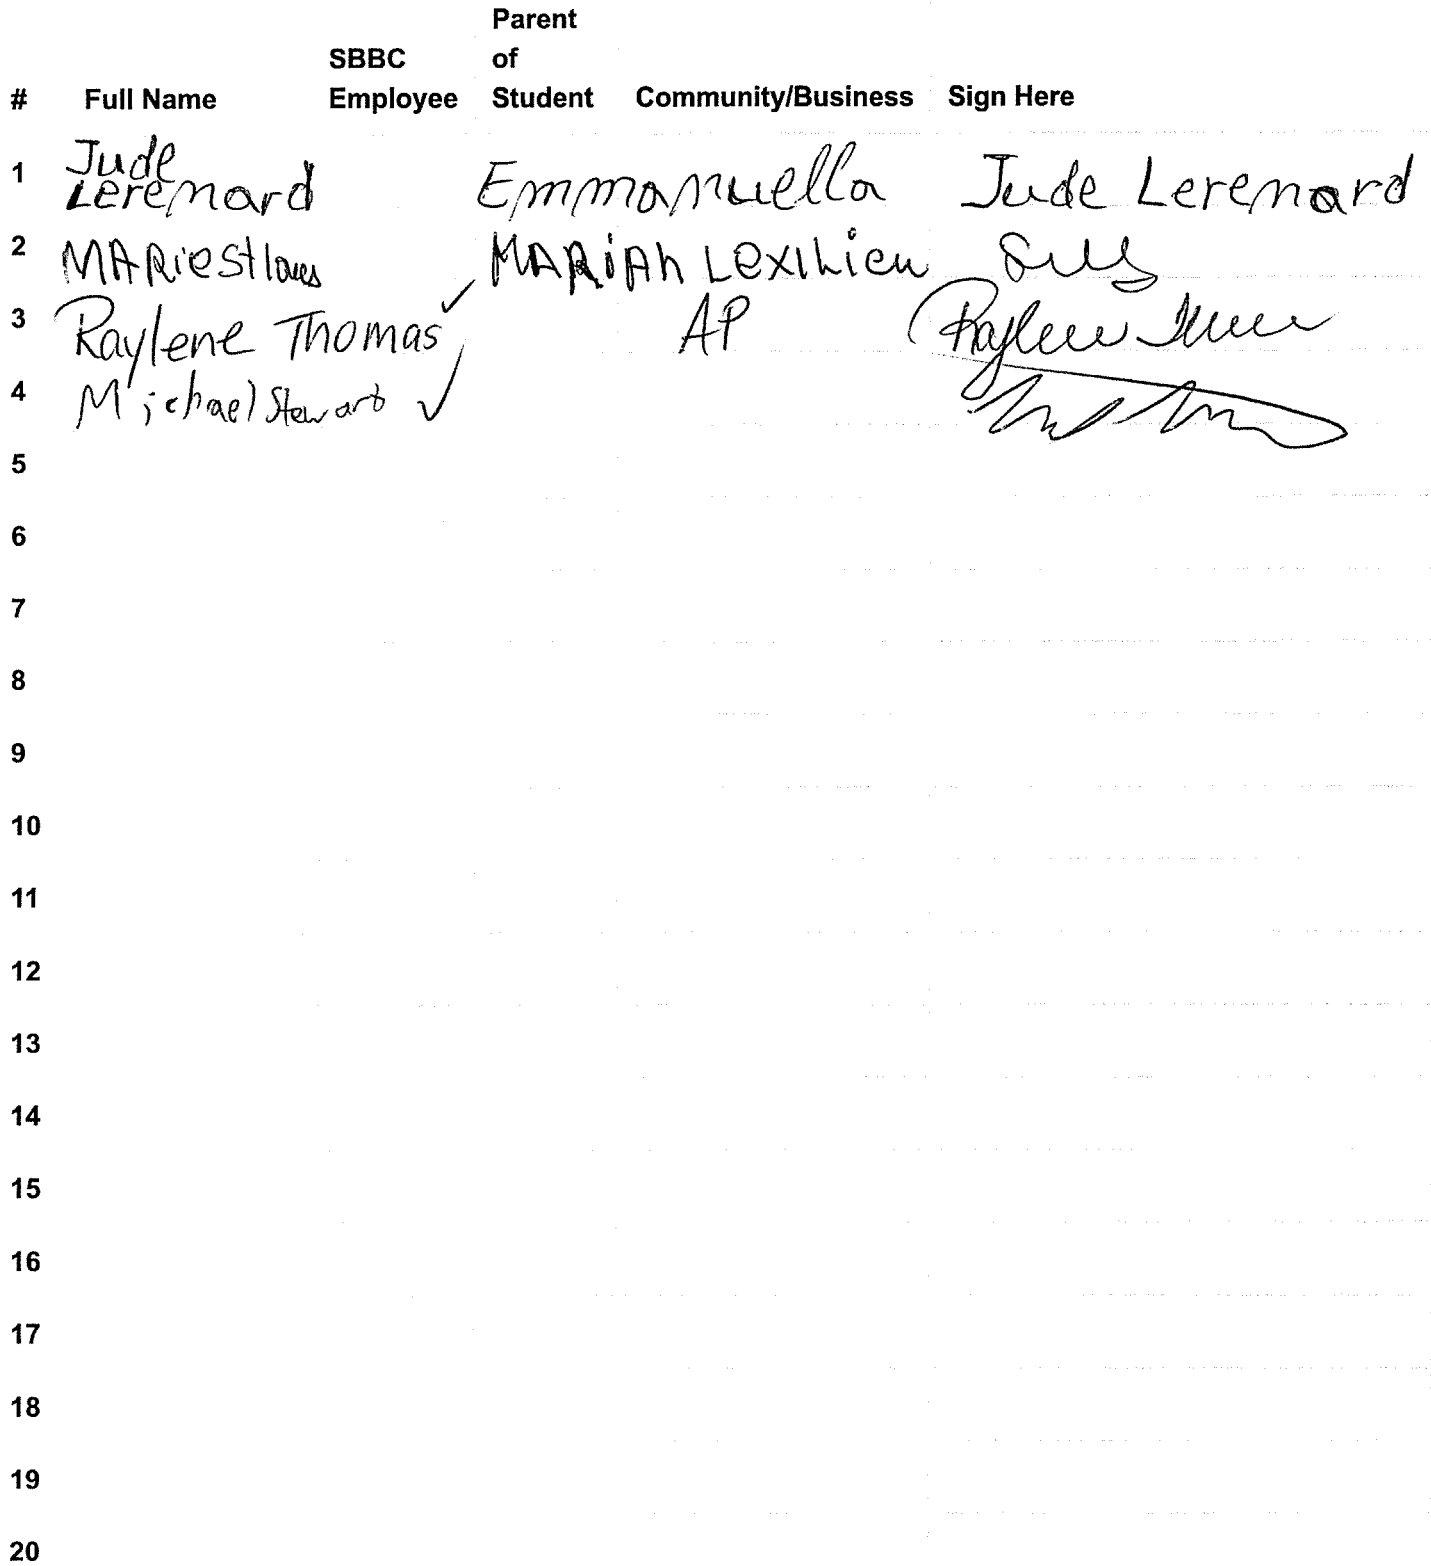 Parent
SBBC of
# Full Name Employee Student Community/Business Sign Here
1 Jude Lerenard Emmanuella Jude Lerenard
2 MARiestloues MARiAh
3 Raylene Thomas ✓ AP Raylene
4 Michael Stewart ✓
5
6
7
8
9
10
11
12
13
14
15
16
17
18
19
20